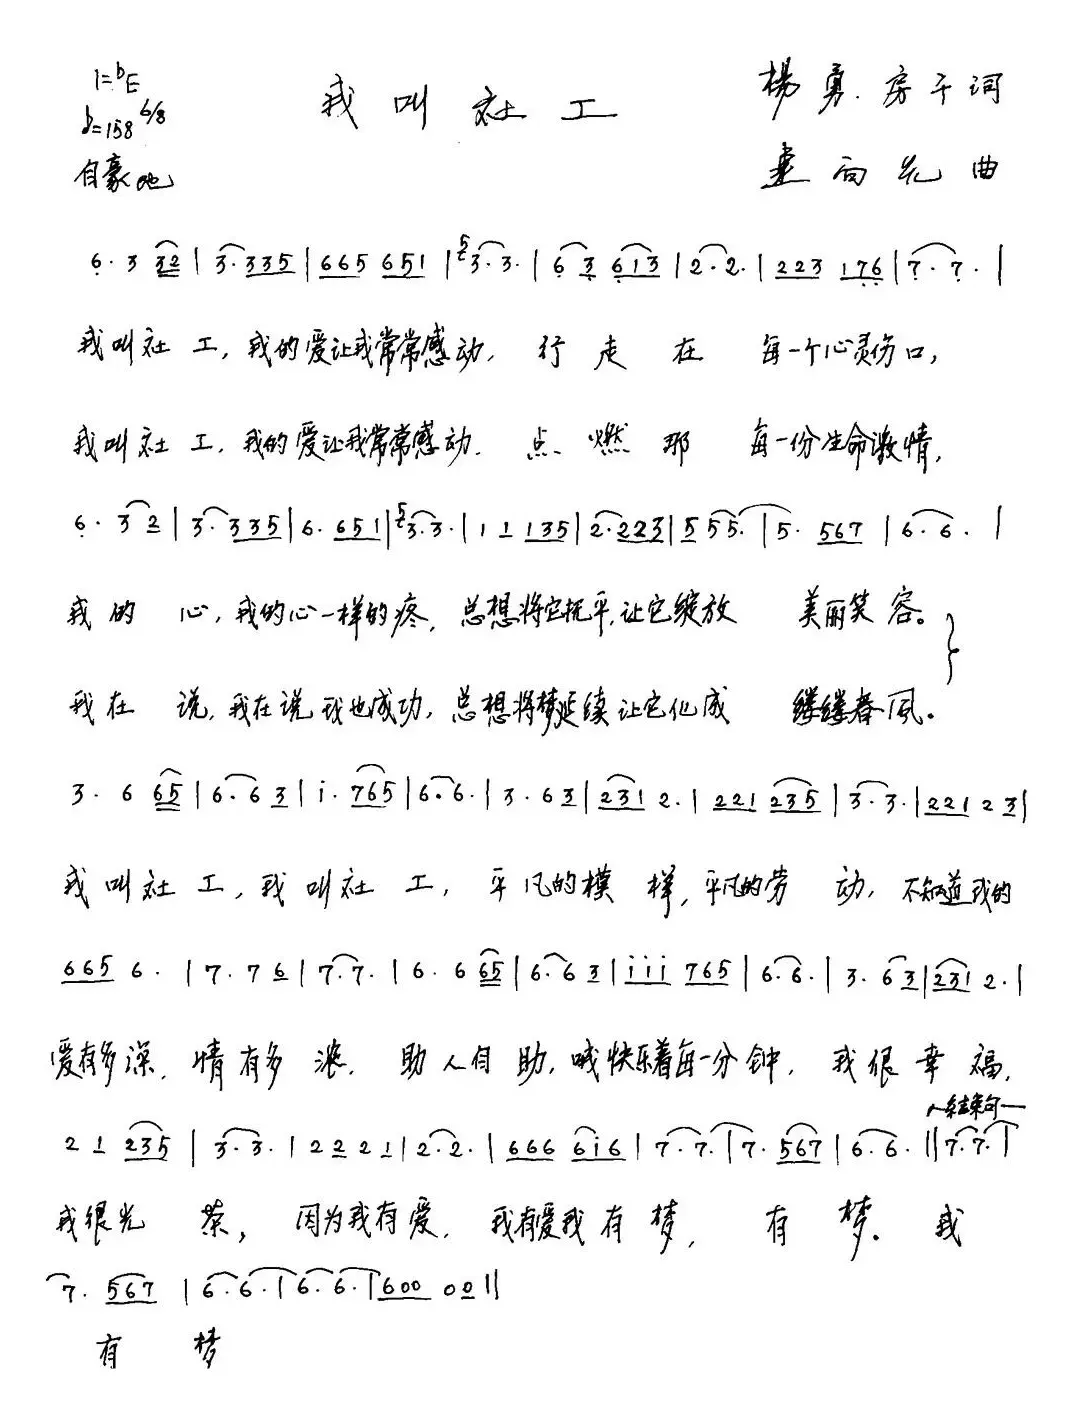 1=♭E
我叫社工
楊勇.房千词
♪=158 6/8
自豪地
向 曲
6̣. 3 32 | 3. 335 | 665 651 | 3. 3. | 6̣ 3̣ 6̣13 | 2. 2. | 223 17̣6̣ | 7̣. 7̣. |
我叫社 工，我的爱让我常常感动， 行 走 在 每一个心灵伤口，
我叫社 工，我的爱让我常常感动. 点 燃 那 每一份生命激情，
6̣. 3 2 | 3. 335 | 6. 651 | 3. 3. | 1 1 135 | 2. 223 | 5 55. | 5. 567 | 6. 6. |
我 的 心，我的心一样的疼，总想将它抚平，让它绽放 美丽笑 容。
我在 说，我在说我也成功，总想将梦延续让它化成 缕缕春風。
3. 6 65 | 6. 6 3 | i. 765 | 6. 6. | 3. 6 3 | 231 2. | 221 235 | 3. 3. | 221 2 3 |
我叫社 工，我叫社 工，平凡的模 样，平凡的劳 动，不知道我的
665 6. | 7. 7 6 | 7. 7. | 6. 6 65 | 6. 6 3 | iii 765 | 6. 6. | 3. 6 3 | 231 2. |
爱有多深，情有多 浓. 助人自 助，哦快乐着每一分钟，我很幸 福，
结束句
2 1 235 | 3. 3. | 2 2 2 1 | 2. 2. | 666 6i6 | 7. 7. | 7. 567 | 6. 6. || 7. 7. |
我很光 荣，因为我有爱. 我有爱我有 梦， 有 梦。我
7. 567 | 6. 6. | 6. 6. | 600 00 ||
有 梦